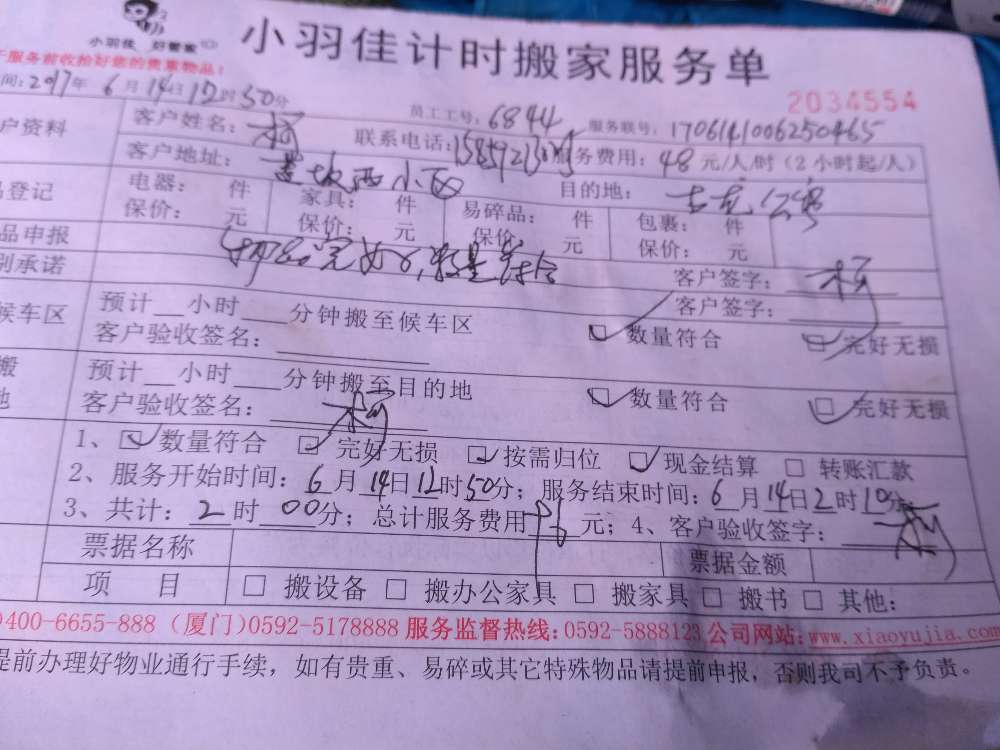 小羽佳 好管家
小羽佳计时搬家服务单
于服务前收拾好您的贵重物品！
2034554
间：2017年6月14日12时50分
员工工号：6844 服务联号：1706141006250465
户资料 客户姓名：柯 联系电话： 服务费用：48元/人/时（2小时起/人）
客户地址：西小区 目的地：公寓
品登记 电器： 件 家具： 件 易碎品： 件 包裹： 件
保价： 元 保价： 元 保价： 元 保价： 元
品申报 物品完好，数量符合 客户签字：柯
别承诺 客户签字：
候车区 预计__小时___分钟搬至候车区 数量符合 完好无损
客户验收签名：
搬 预计__小时___分钟搬至目的地 数量符合 完好无损
地 客户验收签名：柯
1、 数量符合 完好无损 按需归位 现金结算 转账汇款
2、服务开始时间：6月14日12时50分；服务结束时间：6月14日2时10分
3、共计：2时00分；总计服务费用 元；4、客户验收签字：柯
票据名称 票据金额
项 目 搬设备 搬办公家具 搬家具 搬书 其他：
400-6655-888（厦门）0592-5178888 服务监督热线：0592-5888123 公司网站：www.xiaoyujia.com
提前办理好物业通行手续，如有贵重、易碎或其它特殊物品请提前申报，否则我司不予负责。